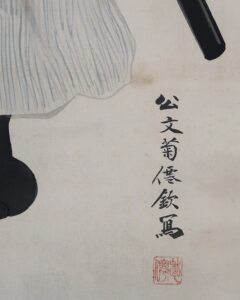 公文菊僊欽寫